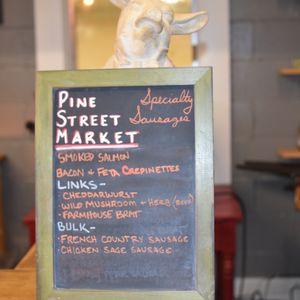 Pine
Street
Market
Specialty
Sausages
Smoked Salmon
Bacon & Feta Crepinettes
Links-
· Cheddarwurst
· Wild Mushroom + Herb
· Farmhouse Brat
Bulk-
· French Country Sausage
· Chicken Sage Sausage